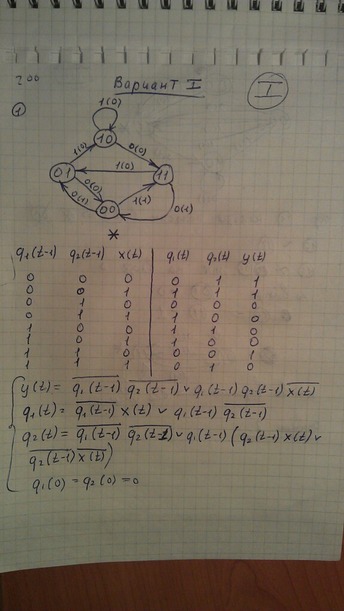 200
Вариант I
I
1
1(0)
10
1(0) 0(0)
01 1(0) 11
0(0)
0(1) 1(1) 0(1)
00
*
q₁(t-1) q₂(t-1) x(t) | q₁(t) q₂(t) y(t)
0 0 0 | 0 1 1
0 0 1 | 1 1 1
0 1 0 | 0 0 0
0 1 1 | 1 0 0
1 0 0 | 1 1 0
1 0 1 | 1 0 0
1 1 0 | 0 0 1
1 1 1 | 0 1 0
y(t) = q̅₁̅(̅t̅-̅1̅)̅ q̅₂̅(̅t̅-̅1̅)̅ ∨ q₁(t-1) q₂(t-1) x̅(̅t̅)̅
q₁(t) = q̅₁̅(̅t̅-̅1̅)̅ x(t) ∨ q₁(t-1) q̅₂̅(̅t̅-̅1̅)̅
q₂(t) = q̅₁̅(̅t̅-̅1̅)̅ q̅₂̅(̅t̅-̅1̅)̅ ∨ q₁(t-1) (q₂(t-1) x(t) ∨
q̅₂̅(̅t̅-̅1̅)̅ x̅(̅t̅)̅)
q₁(0) = q₂(0) = 0